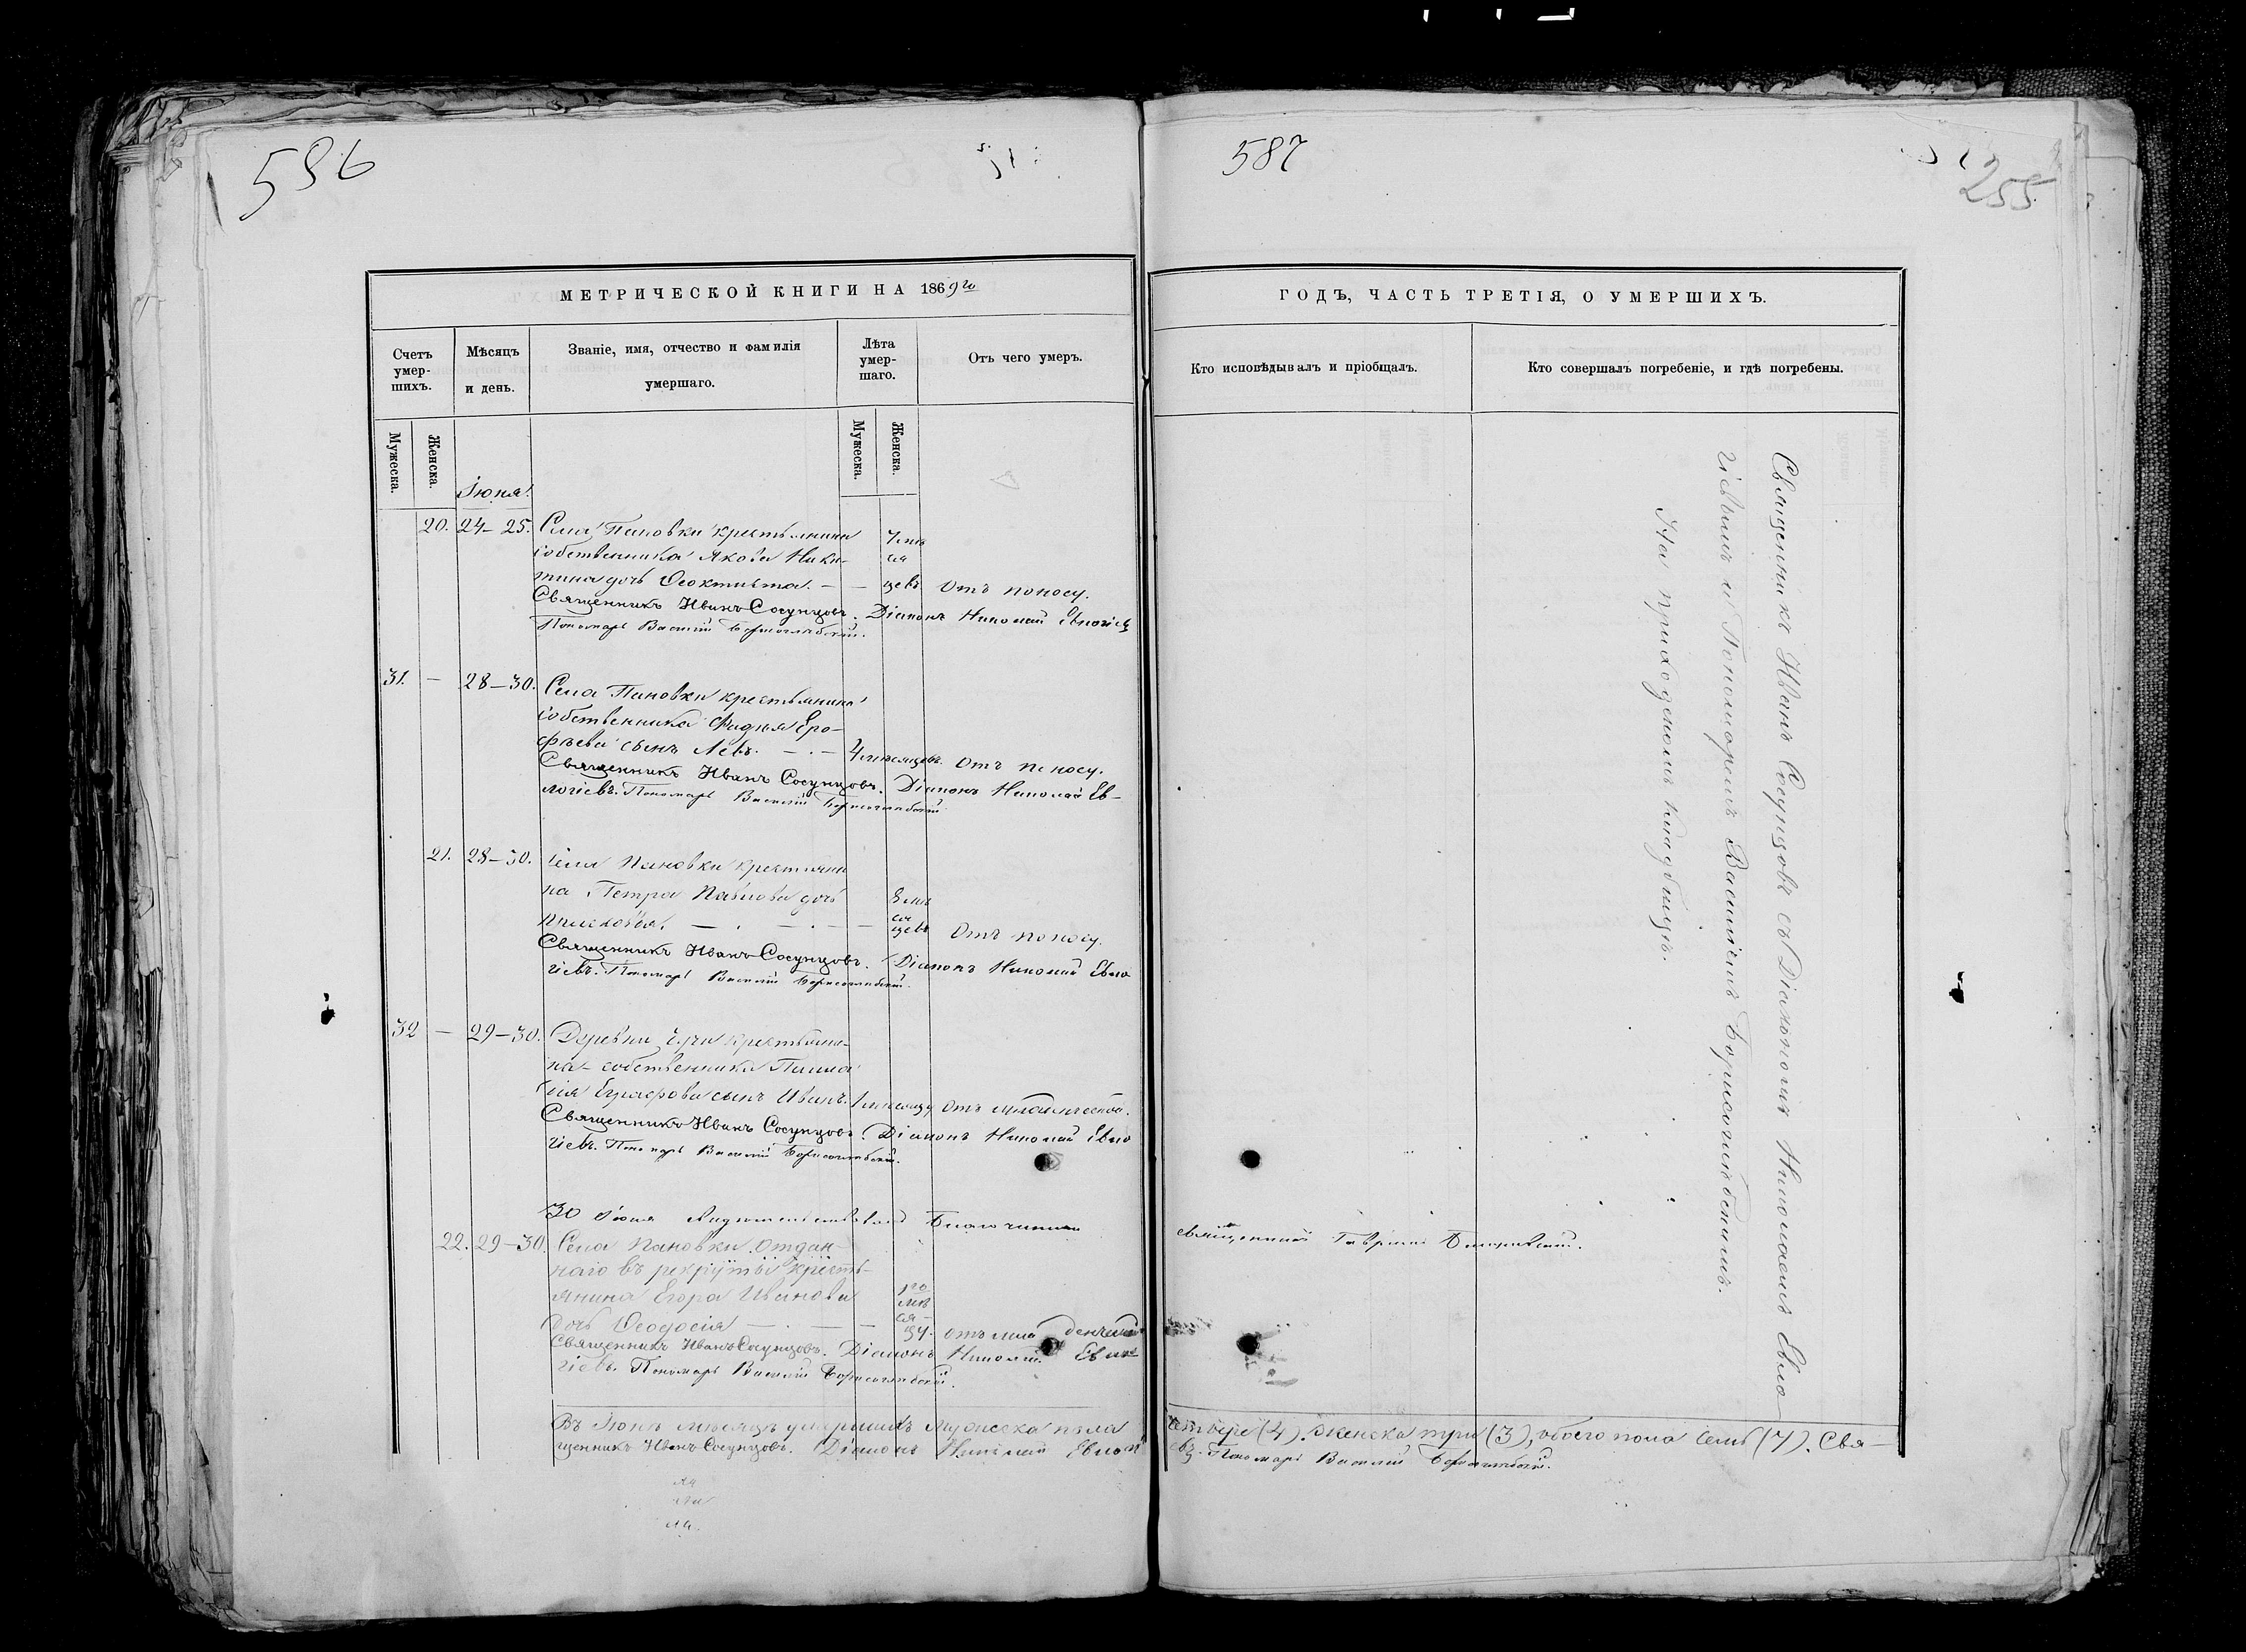 586
587
255
МЕТРИЧЕСКОЙ КНИГИ НА 1869го
ГОДЪ, ЧАСТЬ ТРЕТІЯ, О УМЕРШИХЪ.
Счетъ умер-шихъ.
Мѣсяцъ и день.
Званіе, имя, отчество и фамилія умершаго.
Лѣта умер-шаго.
Отъ чего умеръ.
Кто исповѣдывалъ и пріобщалъ.
Кто совершалъ погребеніе, и гдѣ погребены.
Мужеска.
Женска.
Мужеска.
Женска.
Іюня.
20. 24–25. Села Пановки крестьянина
собственника Якова Ники-
тина дочь Ѳеоктиста. – – мѣсяцевъ Отъ поносу.
Священникъ Иванъ Сосунцовъ. Діаконъ Николай Евлогіевъ
Пономарь Василій Борисоглѣбскій.
31. – 28–30. Села Пановки крестьянина
собственника Фадѣя Еро-
фѣева сынъ Левъ. – . – 4 мѣсяцевъ. Отъ поносу.
Священникъ Иванъ Сосунцовъ. Діаконъ Николай Ев-
логіевъ. Пономарь Василій Борисоглѣбскій.
21. 28–30. Села Пановки крестьяни
на Петра Павлова дочь
Прасковья. – . – . – – мѣсяцевъ Отъ поносу.
Священникъ Иванъ Сосунцовъ. Діаконъ Николай Евло
гіевъ. Пономарь Василій Борисоглѣбскій.
32 – 29–30. Деревни крестьяни-
на-собственника
сынъ Иванъ. 1 мѣсяцу отъ младенческой.
Священникъ Иванъ Сосунцовъ. Діаконъ Николай Евло
гіевъ. Пономарь Василій Борисоглѣбскій.
30 Іюня Благочинный священникъ Гавріилъ
22. 29–30. Села Пановки отдан-
наго въ рекруты кресть-
янина Егора Иванова
дочь Ѳеодосія – . – – мѣсяцу. отъ младенческой
Священникъ Иванъ Сосунцовъ. Діаконъ Николай Евло
гіевъ. Пономарь Василій Борисоглѣбскій.
Въ Іюнѣ мѣсяцѣ умершихъ мужеска пола четыре (4). женска три (3), обоего пола семь (7). Свя-
щенникъ Иванъ Сосунцовъ. Діаконъ Николай Евлогіевъ. Пономарь Василій Борисоглѣбскій.
Священникъ Иванъ Сосунцовъ съ Діакономъ Николаемъ Евло
гіевымъ и Пономоремъ Василіемъ Борисоглѣбскимъ.
На приходскомъ кладбищѣ.